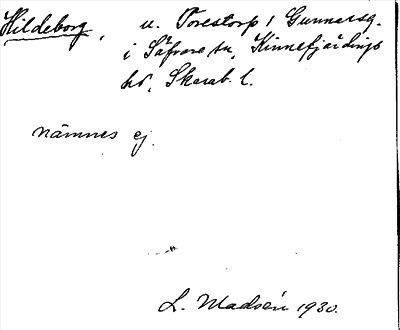 Hildeborg, u. Torestorp 1 Gunnarsg.
i Såfvare sn, Kinnefjärdings
hd, Skarab. l.
nämnes ej.
L. Madsén 1930.